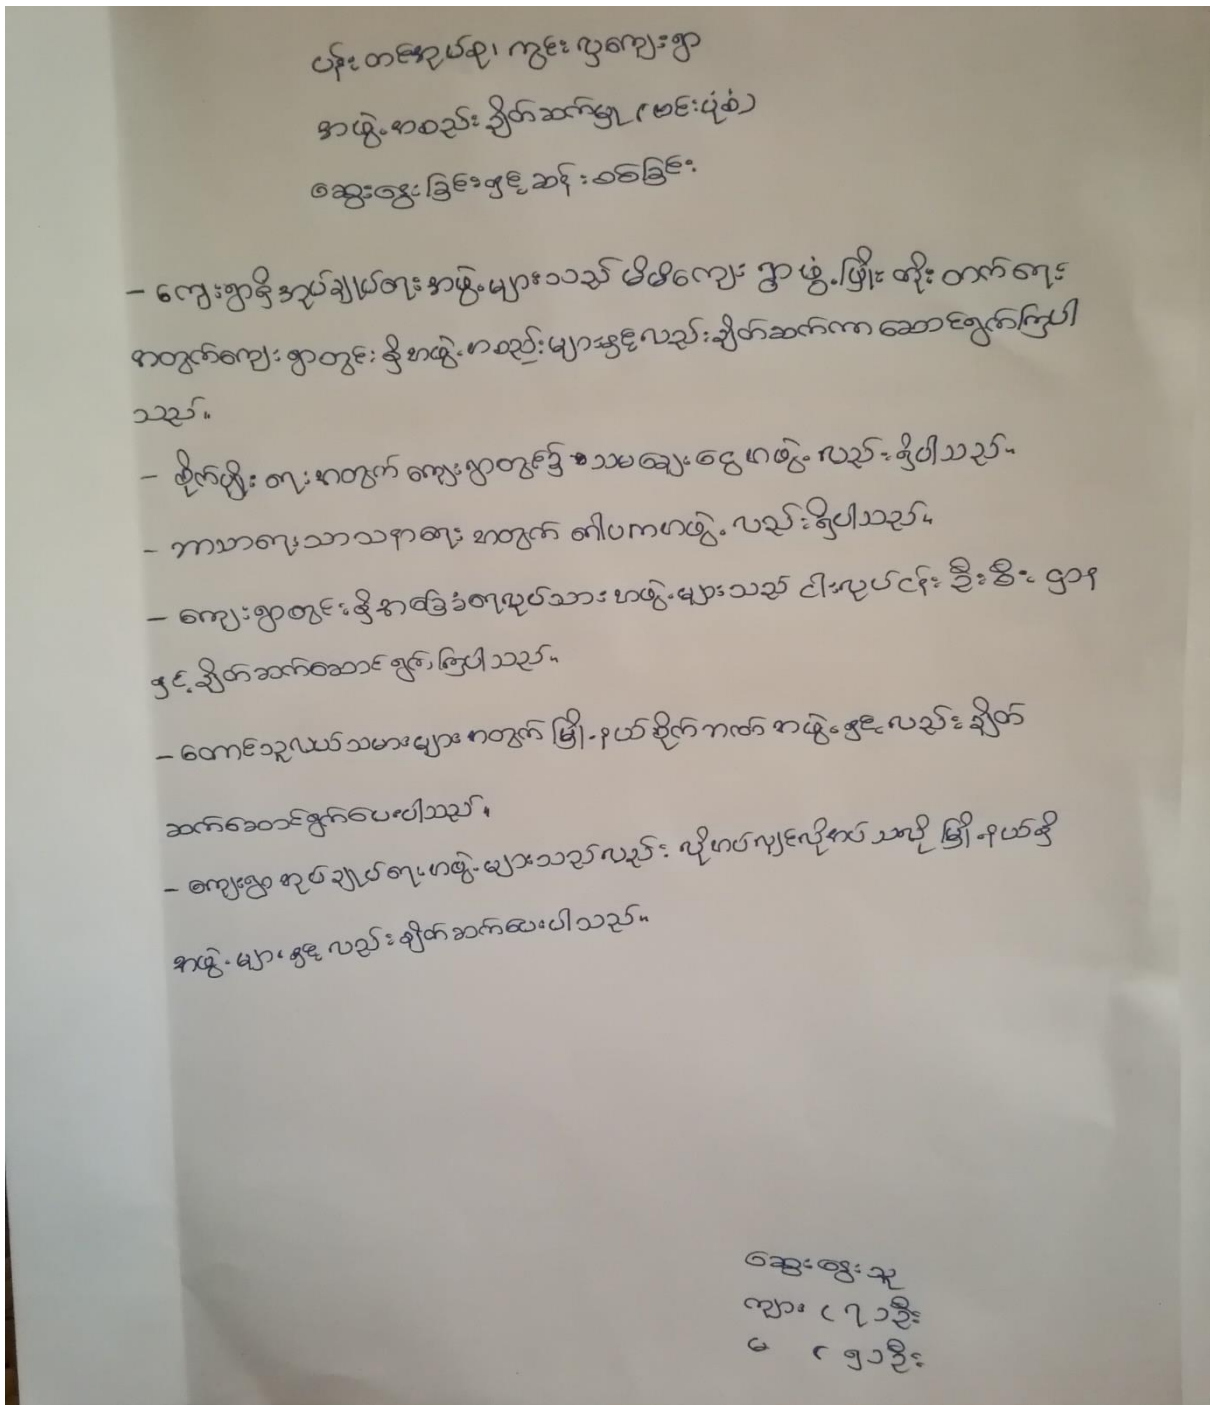 ပန်းတင်အုပ်စု၊ ကွင်းလှကျေးရွာ
အဖွဲ့အစည်းချိတ်ဆက်မှု (ဗင်းပုံစံ)
ဆွေးနွေးခြင်းနှင့် ဆန်းစစ်ခြင်း
- ကျေးရွာရှိအုပ်ချုပ်ရေးအဖွဲ့များသည် မိမိကျေးရွာဖွံ့ဖြိုးတိုးတက်ရေး
အတွက်ကျေးရွာတွင်းရှိအဖွဲ့အစည်းများနှင့်လည်းချိတ်ဆက်ကာဆောင်ရွက်ကြပါ
သည်။
- စိုက်ပျိုးရေးအတွက် ကျေးရွာတွင်၌ သမချေးငွေအဖွဲ့လည်းရှိပါသည်။
- ဘာသာရေးသာသနာရေးအတွက် ဂေါပကအဖွဲ့လည်းရှိပါသည်။
- ကျေးရွာတွင်းရှိအခြေခံရေလုပ်သားအဖွဲ့များသည် ငါးလုပ်ငန်းဦးစီးဌာန
နှင့်ချိတ်ဆက်ဆောင်ရွက်ကြပါသည်။
- တောင်သူလယ်သမားများအတွက် မြို့နယ်စိုက်ဘဏ်အဖွဲ့နှင့်လည်းချိတ်
ဆက်ဆောင်ရွက်ပေးပါသည်။
- ကျေးရွာအုပ်ချုပ်ရေးအဖွဲ့များသည်လည်း လိုအပ်လျှင်လိုအပ်သလို မြို့နယ်ရှိ
အဖွဲ့များနှင့်လည်းချိတ်ဆက်ပေးပါသည်။
ဆွေးနွေးသူ
ကျား (၇)ဦး
မ (၅)ဦး